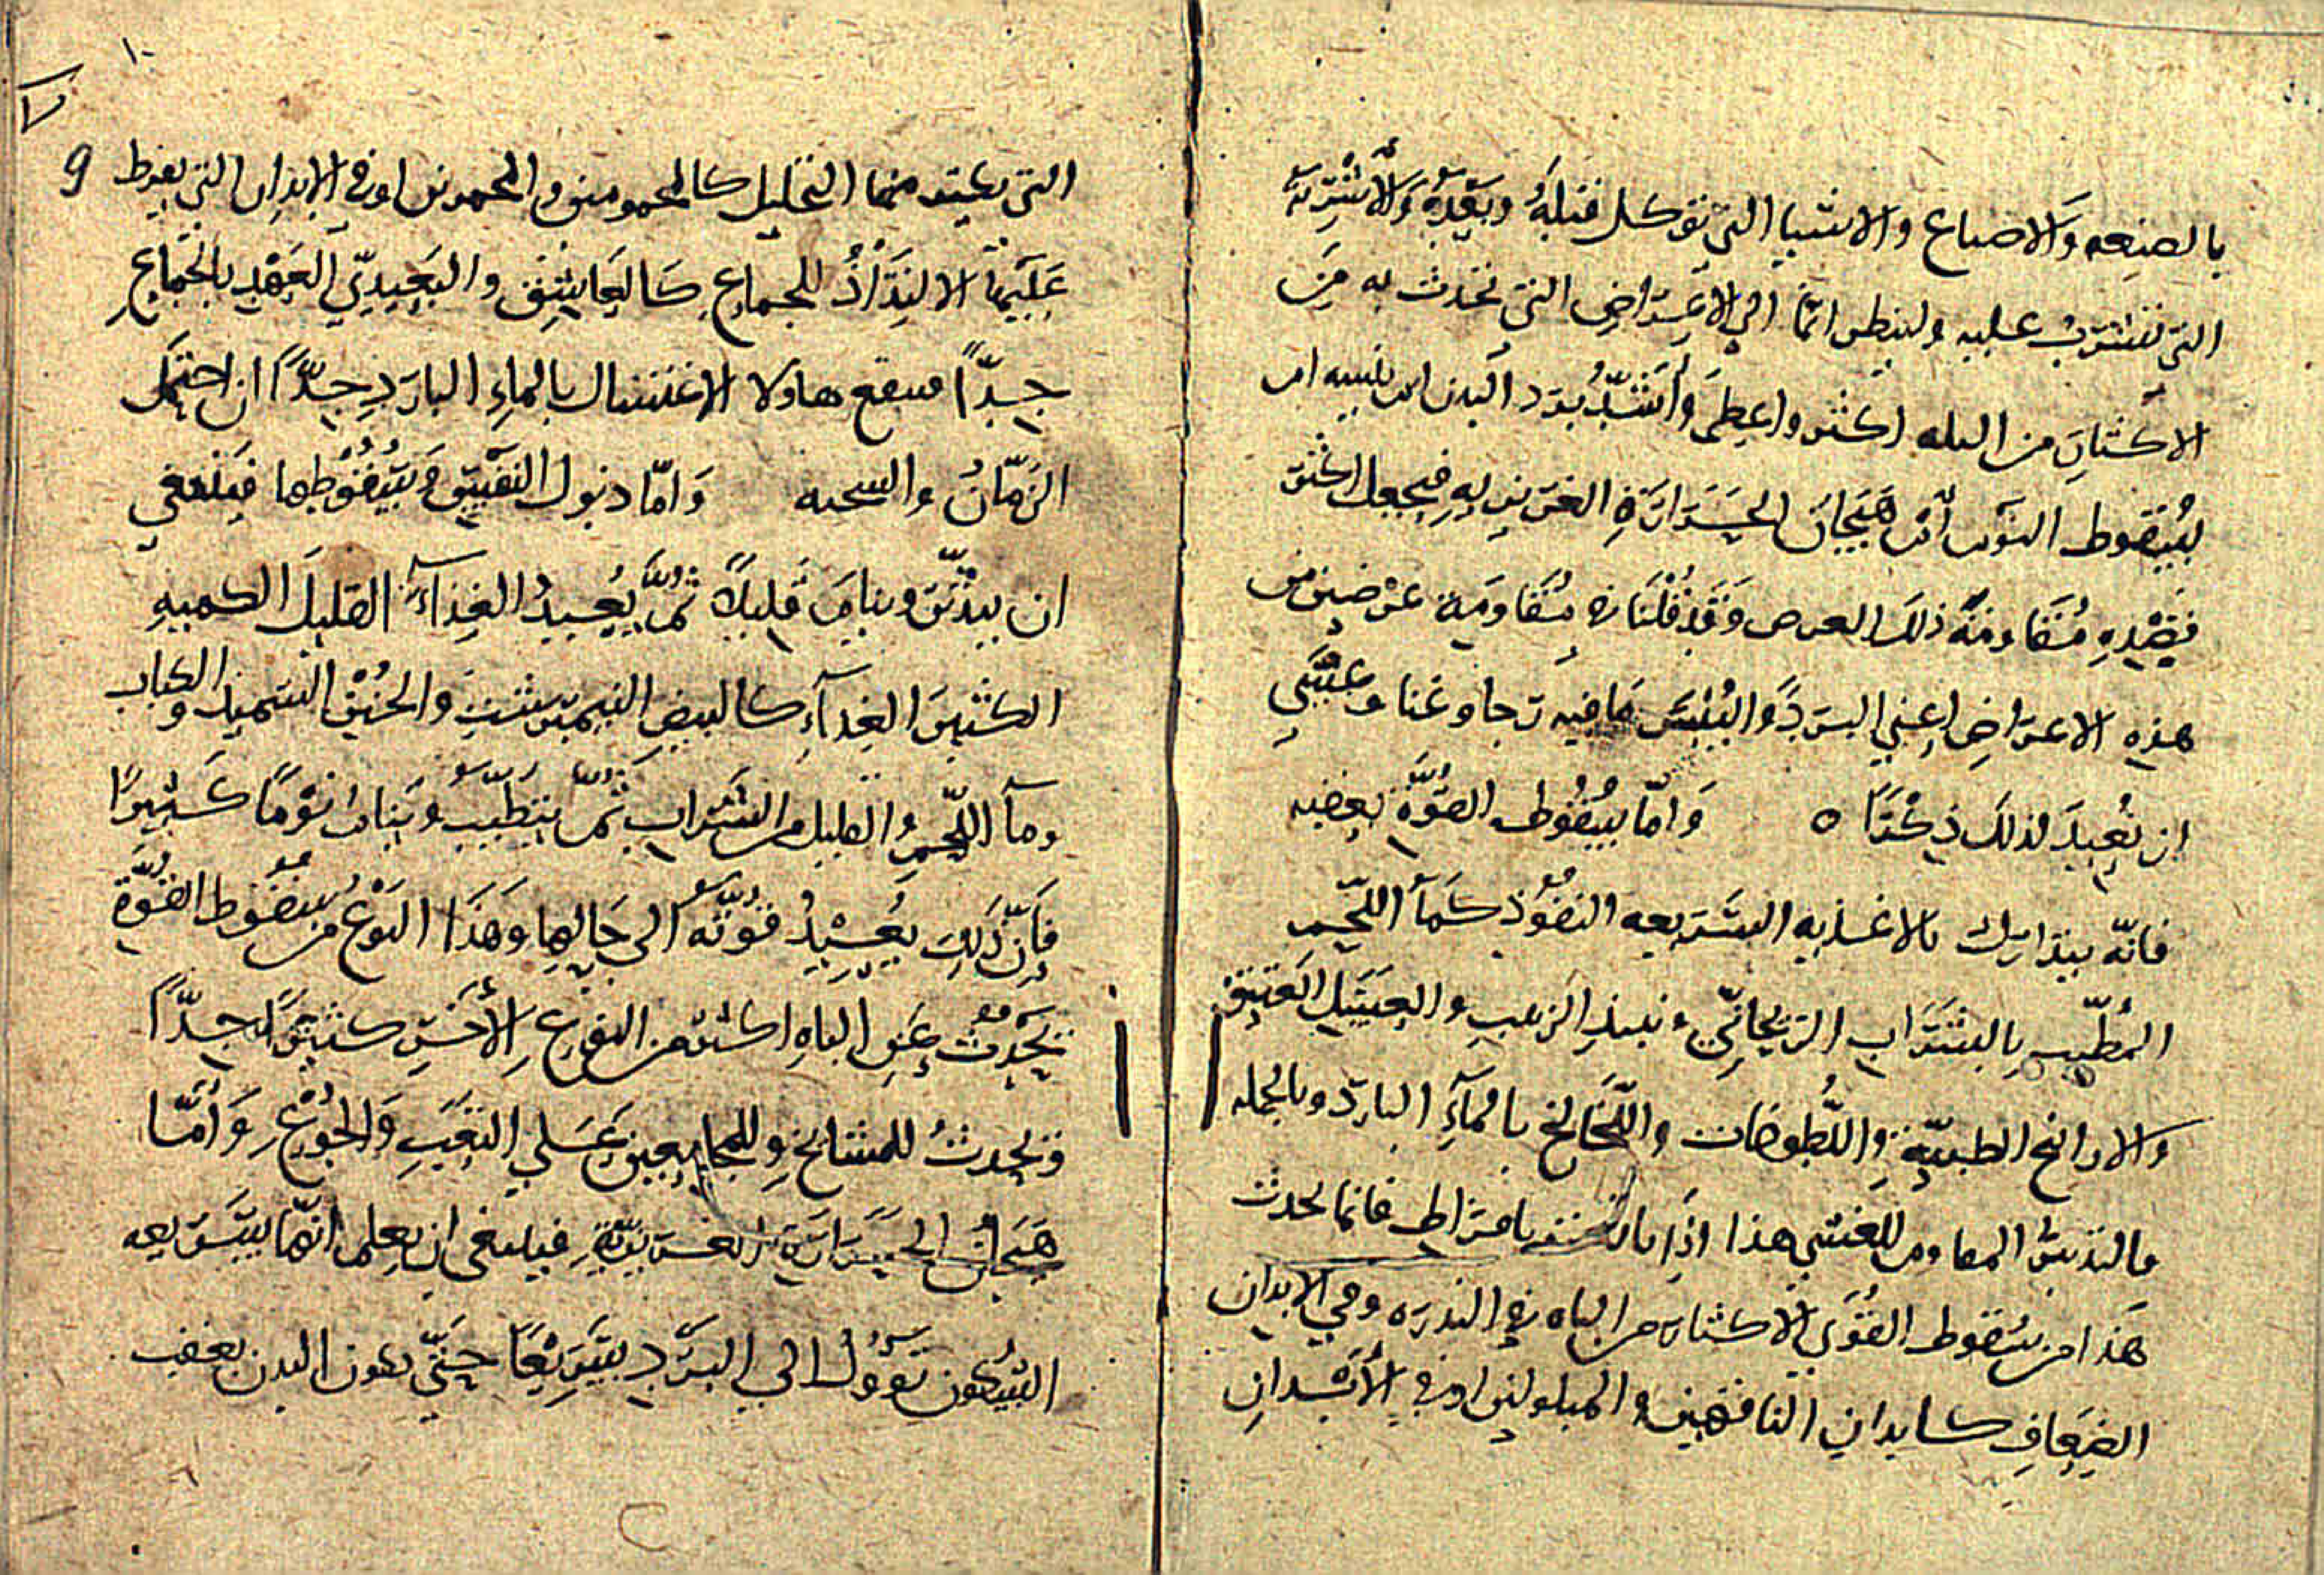 بالصنعه وَالاصباغ والاشيا التي توكل قبلهُ وبَعْدهُ وَالأشْرِبَه
التي تشرب عليه ولينظر انمّا الي الاعْرَاض التي تحدث به مِنَ
الاكثارِ من الباه اكثر واعظمَ وَأشَدّ برد البدن ام يبسه ام
سُقوط القوّه أم هَيجان الحَرَارَةِ الغريبهِ فيجعل اكثر
قصْدِهِ مُقَاومَةً ذلكَ العرض وَقَدْ قُلْنَا في مُقَاومَة عرْضين من
هذهِ الاعرَاض اعني البَردَ وَاليُبْسَ مَا فيه رَجا وغنا وعَسَى
ان نُعِيدَ لذلكَ ذِكْرًا ه وَامّا سُقُوط القوَّة بعَقبه
فانّه يتدارك بالاغذيه السَريعه النفُوذ كَمآ اللّحْم
المُطيّب بِالشَرَابِ الرَيحَانِّي ونبيذِ الزبيب والعَسَل العَتيق
وَالاراتح الطيبّةِ واللّطُوخَات واللّخَالخ بالمآءِ الباردّ وبالجمله
مالتدبيرُ المقاوم للغشي هذا اذَا بافراط فانما يحدث
هَذا من سُقوط القُوَي الاكثار من الباه في الندره وفي الابدان
الضِعَافِ كابدانِ الناقهين والمسلولين او في الأبْدانِ
١٠
٧
9
التي يعتد منها التحليل كالمحمومين والمحمرين اوفي الابدان التي يفرط
عَلَيهَا الالتِذَاذُ للجماعِ كَالعَاشِق والبَعيديّ العَهْدِ بالجَماعِ
جدّاً فينفع هاولا الاغتسال بالماءِ البارَدِ جدّاً ان احتمَل
الزمّانُ والسحنه وَامّا ذبول النفْسِ وَسُقُوُطها فينبغي
ان يدّثّر وينامَ قَليلاً ثمَّ يُعيدُ الغِذَآءَ القليلَ الكميهِ
الكثيرَ الغِذآءِ كالبيض النيمبرشت والخُبز السَميد والكباب
ومآ اللّحْم وُالقليل من الشَرَاب ثمّ يتطيّب وَينام نوْمًا كَثيرًا
فاَنّ ذَلِكَ يُعيْدُ قوّتهُ الي حَالِهِا وهَذَا النوْع من سقُوط القُوَّة
يَحْدث عَنِ الباهِ اكثر من النوعِ الأخَرِ كثيراً جدّاً
وَيحدثُ للمشَايخ وللمجامعين عَلي التعَبِ وَالجُوْعِ وَأمّا
هَيَجَانُ الحَرَارَةِ الغريبَةِ فينبغي ان يعلم انهَّا سَريعه
السُكون تَؤوُل الي البَرْدِ سَرِيْعًا حَتّي يكون البدن بعقب